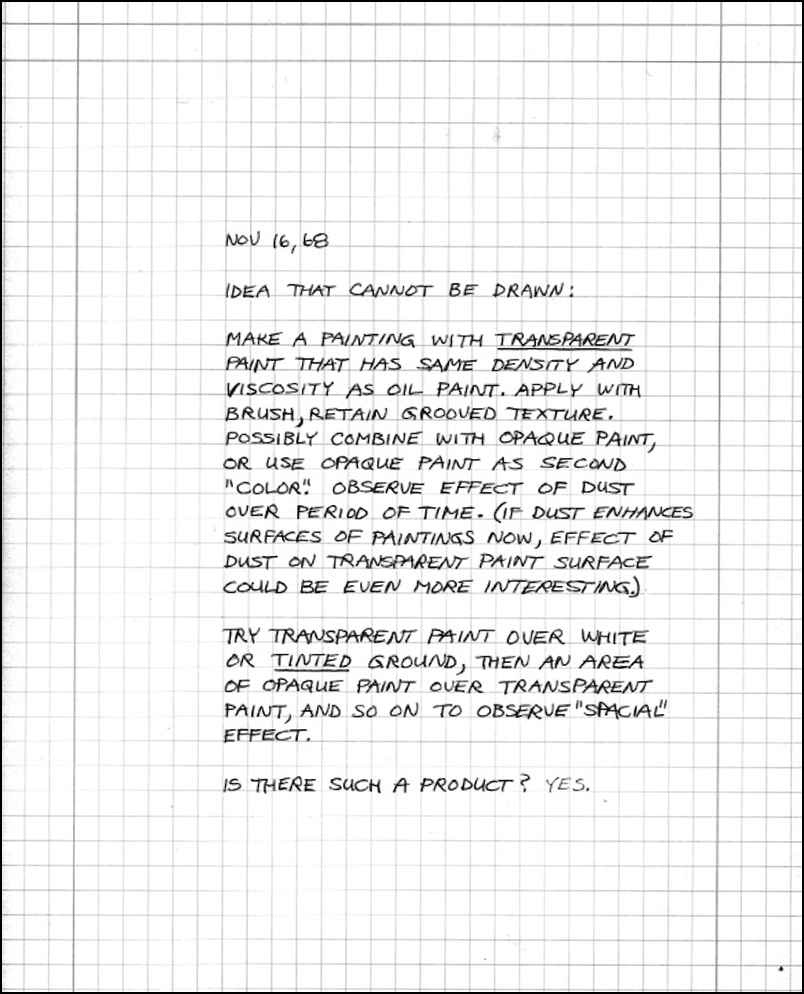 NOV 16, 68
IDEA THAT CANNOT BE DRAWN:
MAKE A PAINTING WITH TRANSPARENT
PAINT THAT HAS SAME DENSITY AND
VISCOSITY AS OIL PAINT. APPLY WITH
BRUSH, RETAIN GROOVED TEXTURE.
POSSIBLY COMBINE WITH OPAQUE PAINT,
OR USE OPAQUE PAINT AS SECOND
"COLOR." OBSERVE EFFECT OF DUST
OVER PERIOD OF TIME. (IF DUST ENHANCES
SURFACES OF PAINTINGS NOW, EFFECT OF
DUST ON TRANSPARENT PAINT SURFACE
COULD BE EVEN MORE INTERESTING.)
TRY TRANSPARENT PAINT OVER WHITE
OR TINTED GROUND, THEN AN AREA
OF OPAQUE PAINT OVER TRANSPARENT
PAINT, AND SO ON TO OBSERVE "SPACIAL"
EFFECT.
IS THERE SUCH A PRODUCT? YES.